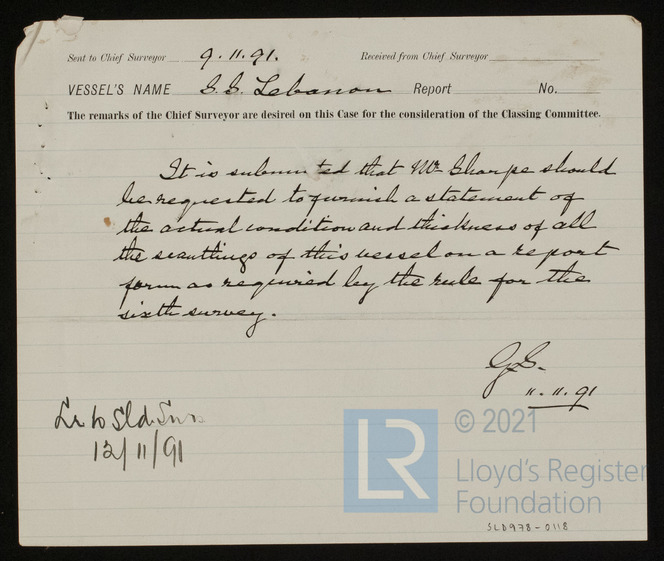 Sent to Chief Surveyor 9.11.91. Received from Chief Surveyor
VESSEL'S NAME S.S. Lebanon Report No.
The remarks of the Chief Surveyor are desired on this Case for the consideration of the Classing Committee.
It is submitted that Mr Sharpe should
be requested to furnish a statement of
the actual condition and thickness of all
the scantlings of this vessel on a report
form as required by the rule for the
sixth survey.
G.S.
11.11.91
Lr to Sld. Surs
12/11/91
LR © 2021
Lloyd's Register
Foundation
SLD978-0118